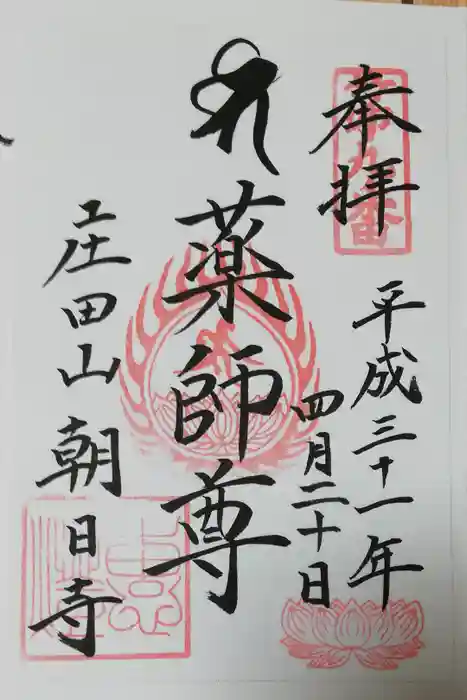 奉拝
平成三十一年
四月二十日
薬師尊
庄田山 朝日寺